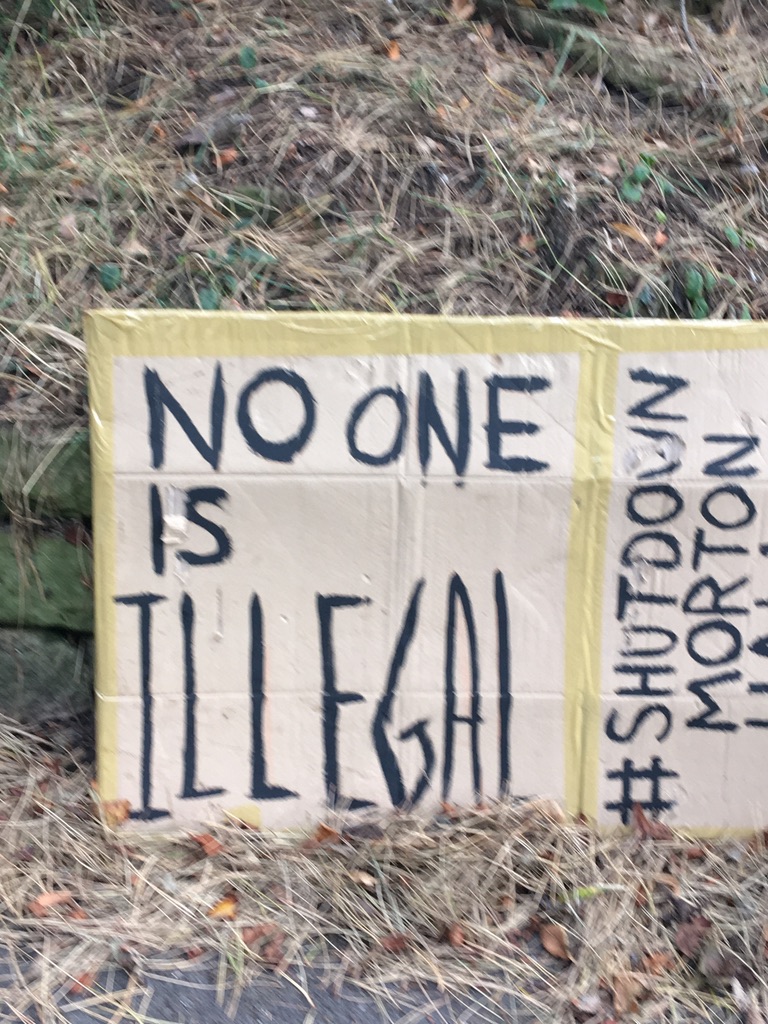 NO ONE
IS
ILLEGAL
#SHUTDOWN
MORTON